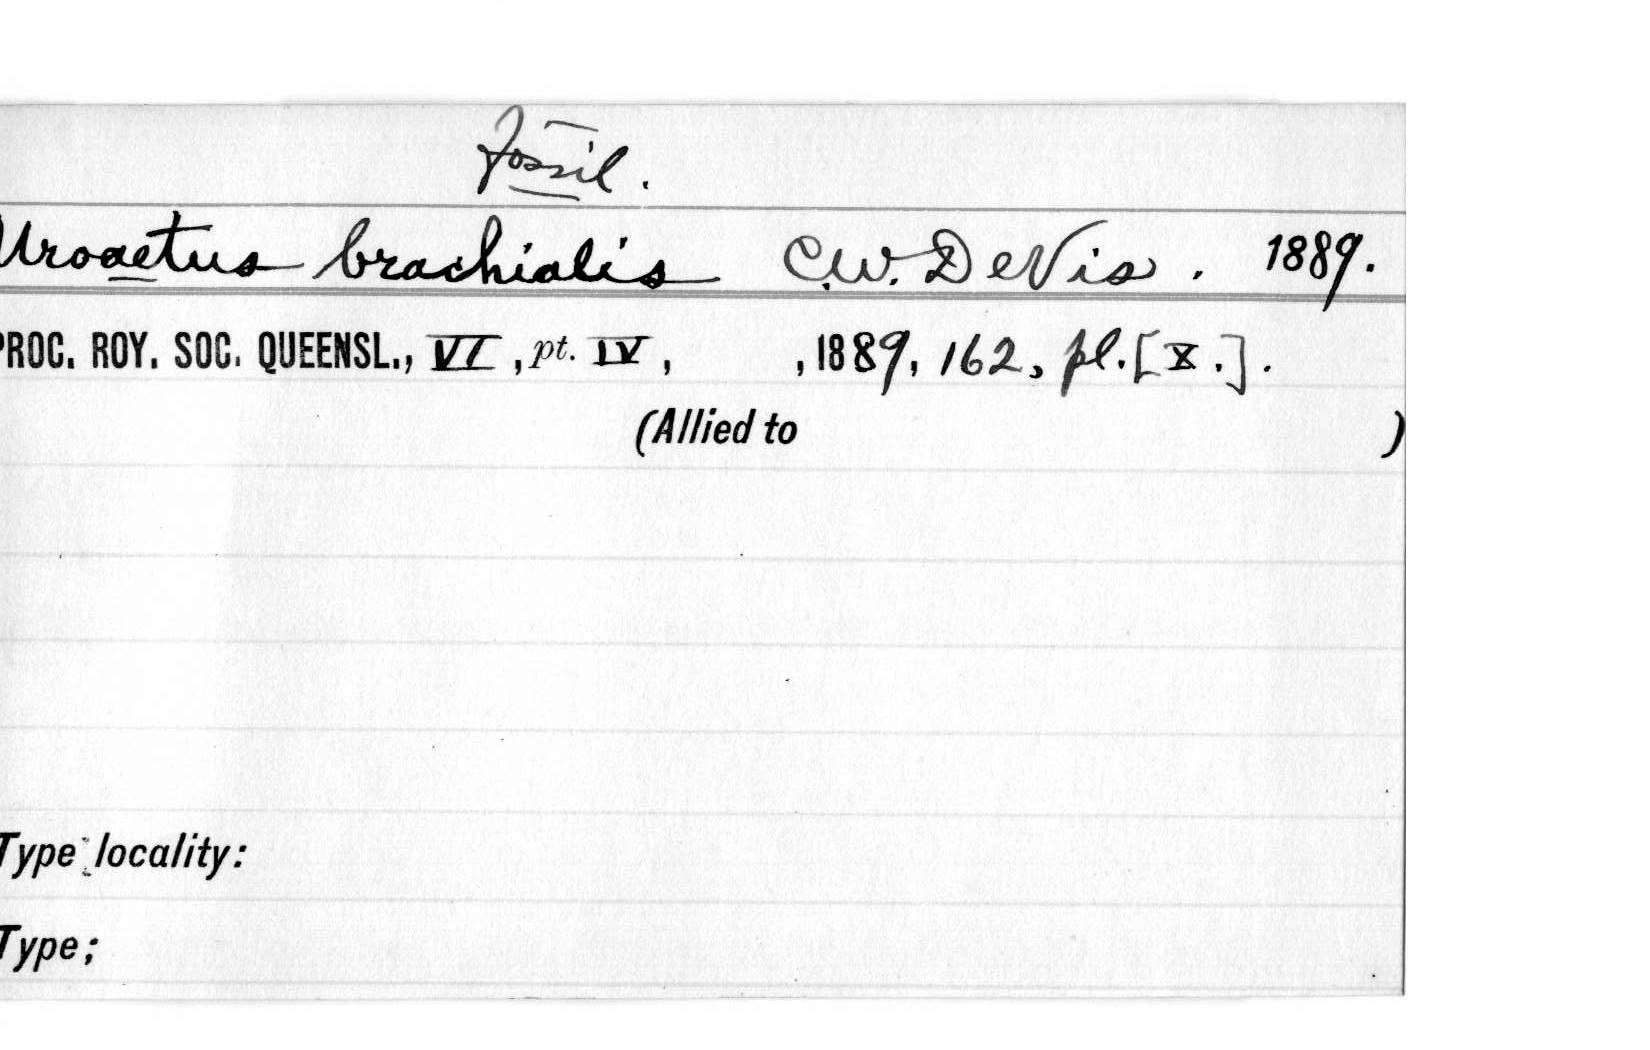 Fossil.
Uroaetus brachialis C.W. DeVis. 1889.
PROC. ROY. SOC. QUEENSL., VI, pt. IV, , 1889, 162, pl. [X.].
(Allied to )
Type locality:
Type;